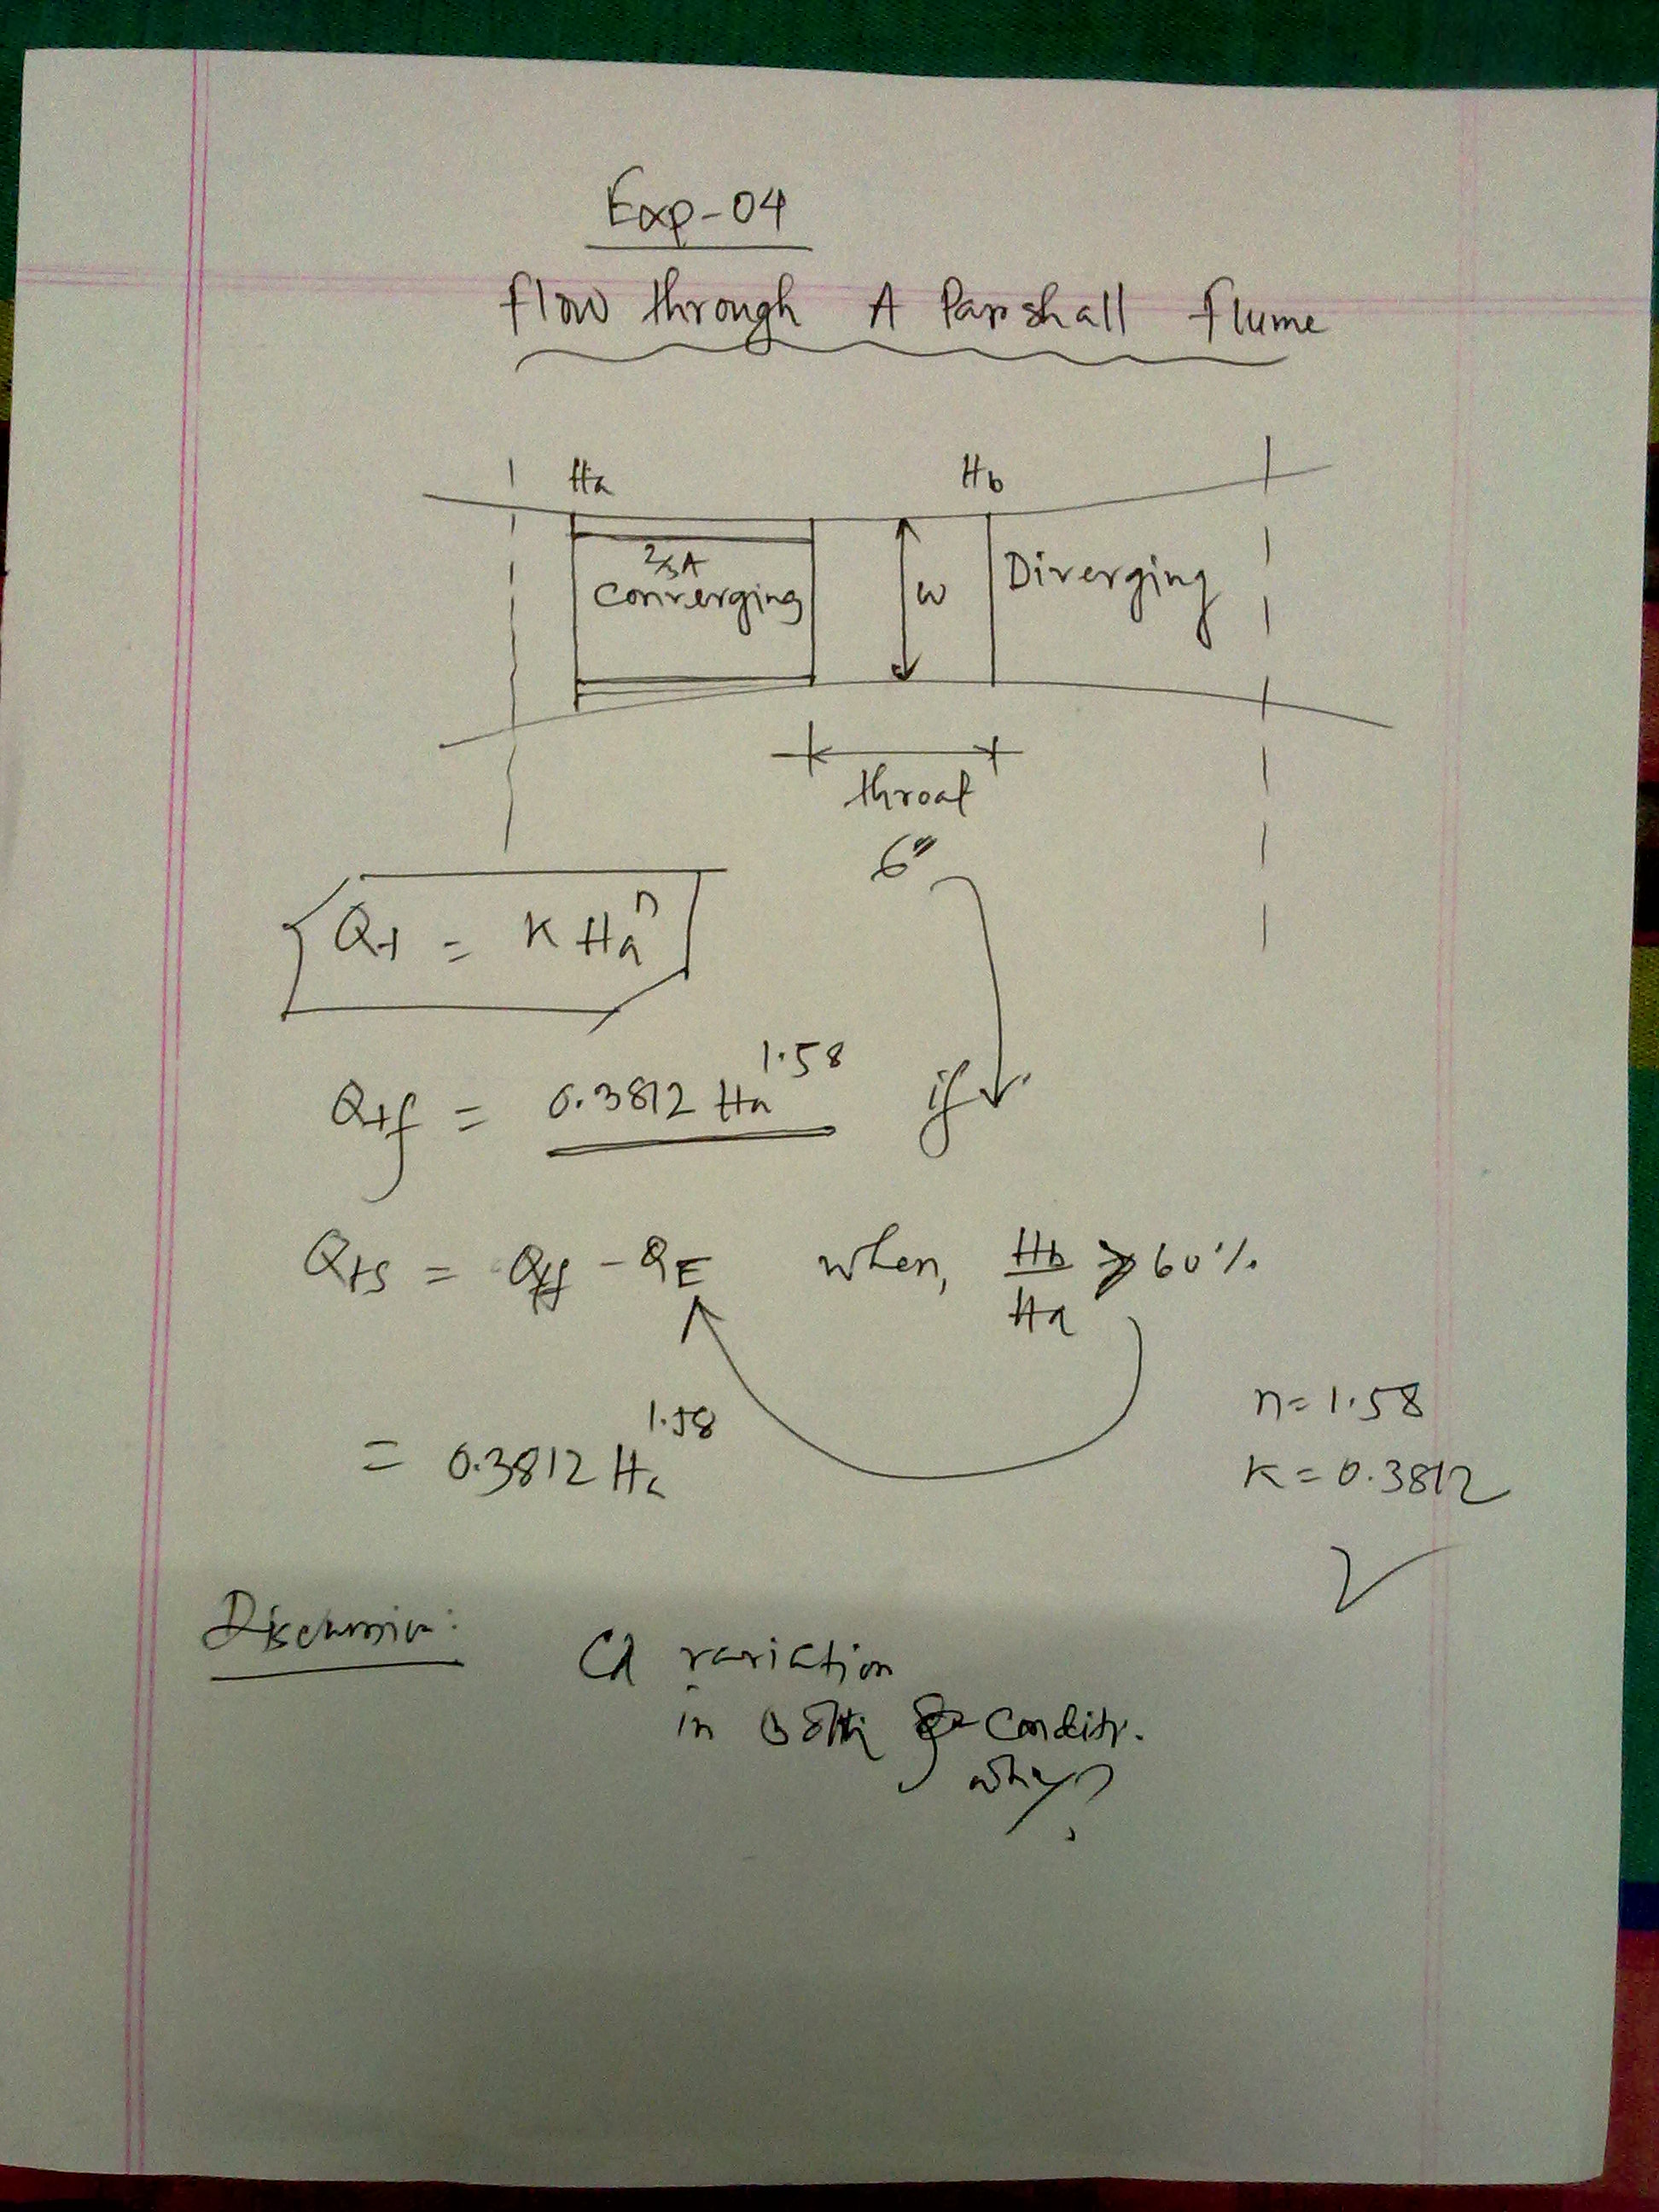 Exp-04
Flow through A Parshall Flume
Ha Hb
2/3A
Converging
W
Diverging
throat
6"
Qt = K Ha^n
Qtf = 0.3812 Ha^1.58 if
Qts = Qtf - QE when, Hb/Ha ≥ 60%
= 0.3812 Ha^1.58
n = 1.58
K = 0.3812
Discussion:
Cd variation
in Both conditn.
why?